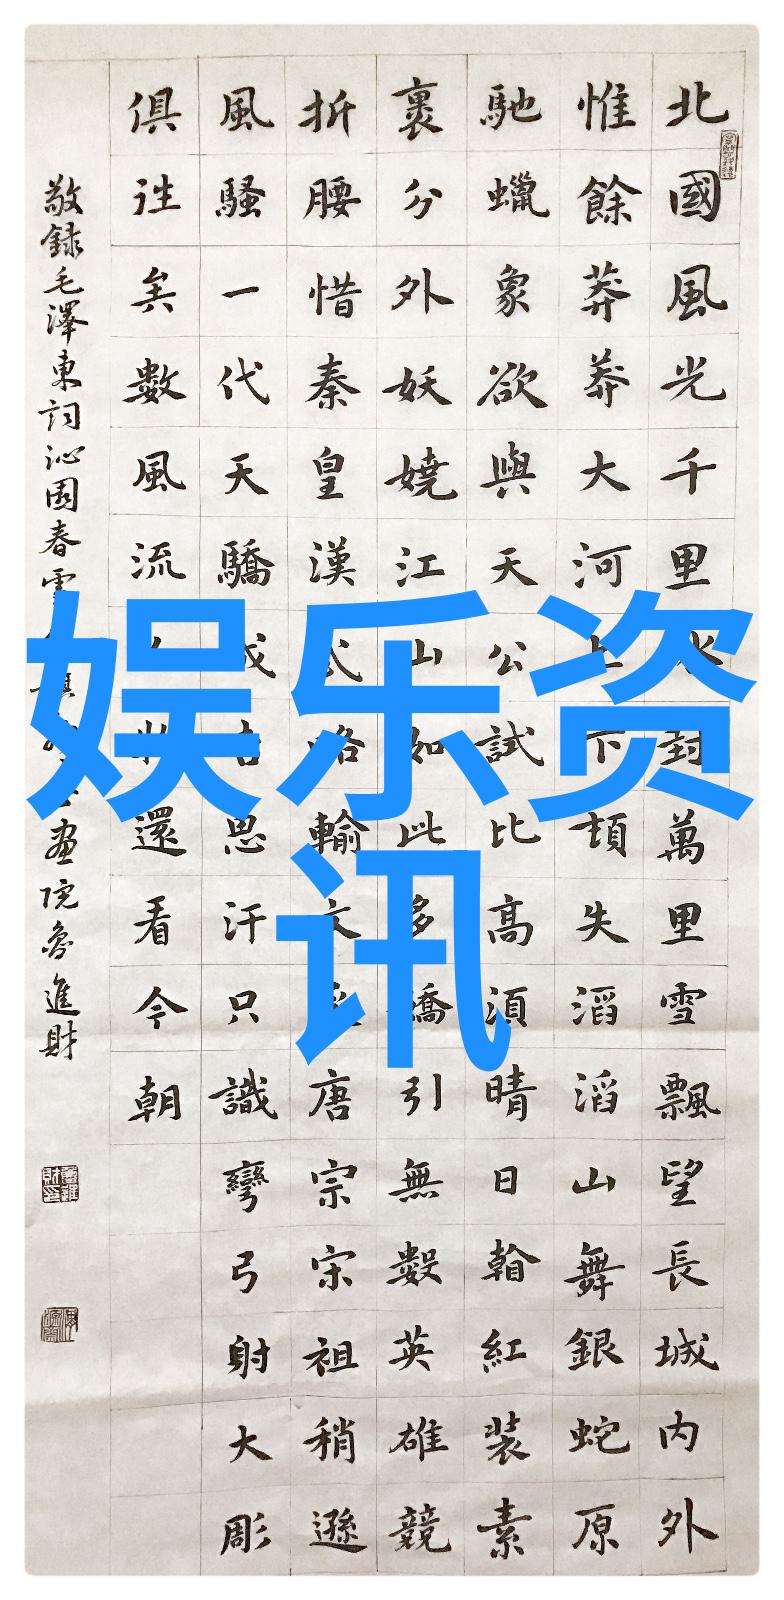 北國風光千里冰封萬里雪飄望長城内外
惟餘莽莽大河上下頓失滔滔山舞銀蛇原
馳蠟象欲與天公試比高須晴日看紅裝素
裹分外妖嬈江山如此多嬌引無數英雄競
折腰惜秦皇漢武略輸文采唐宗宋祖稍遜
風騷一代天驕成吉思汗只識彎弓射大彫
俱往矣數風流人物還看今朝
敬録毛澤東詞沁園春雪 畫院魯進財
娱乐资
讯